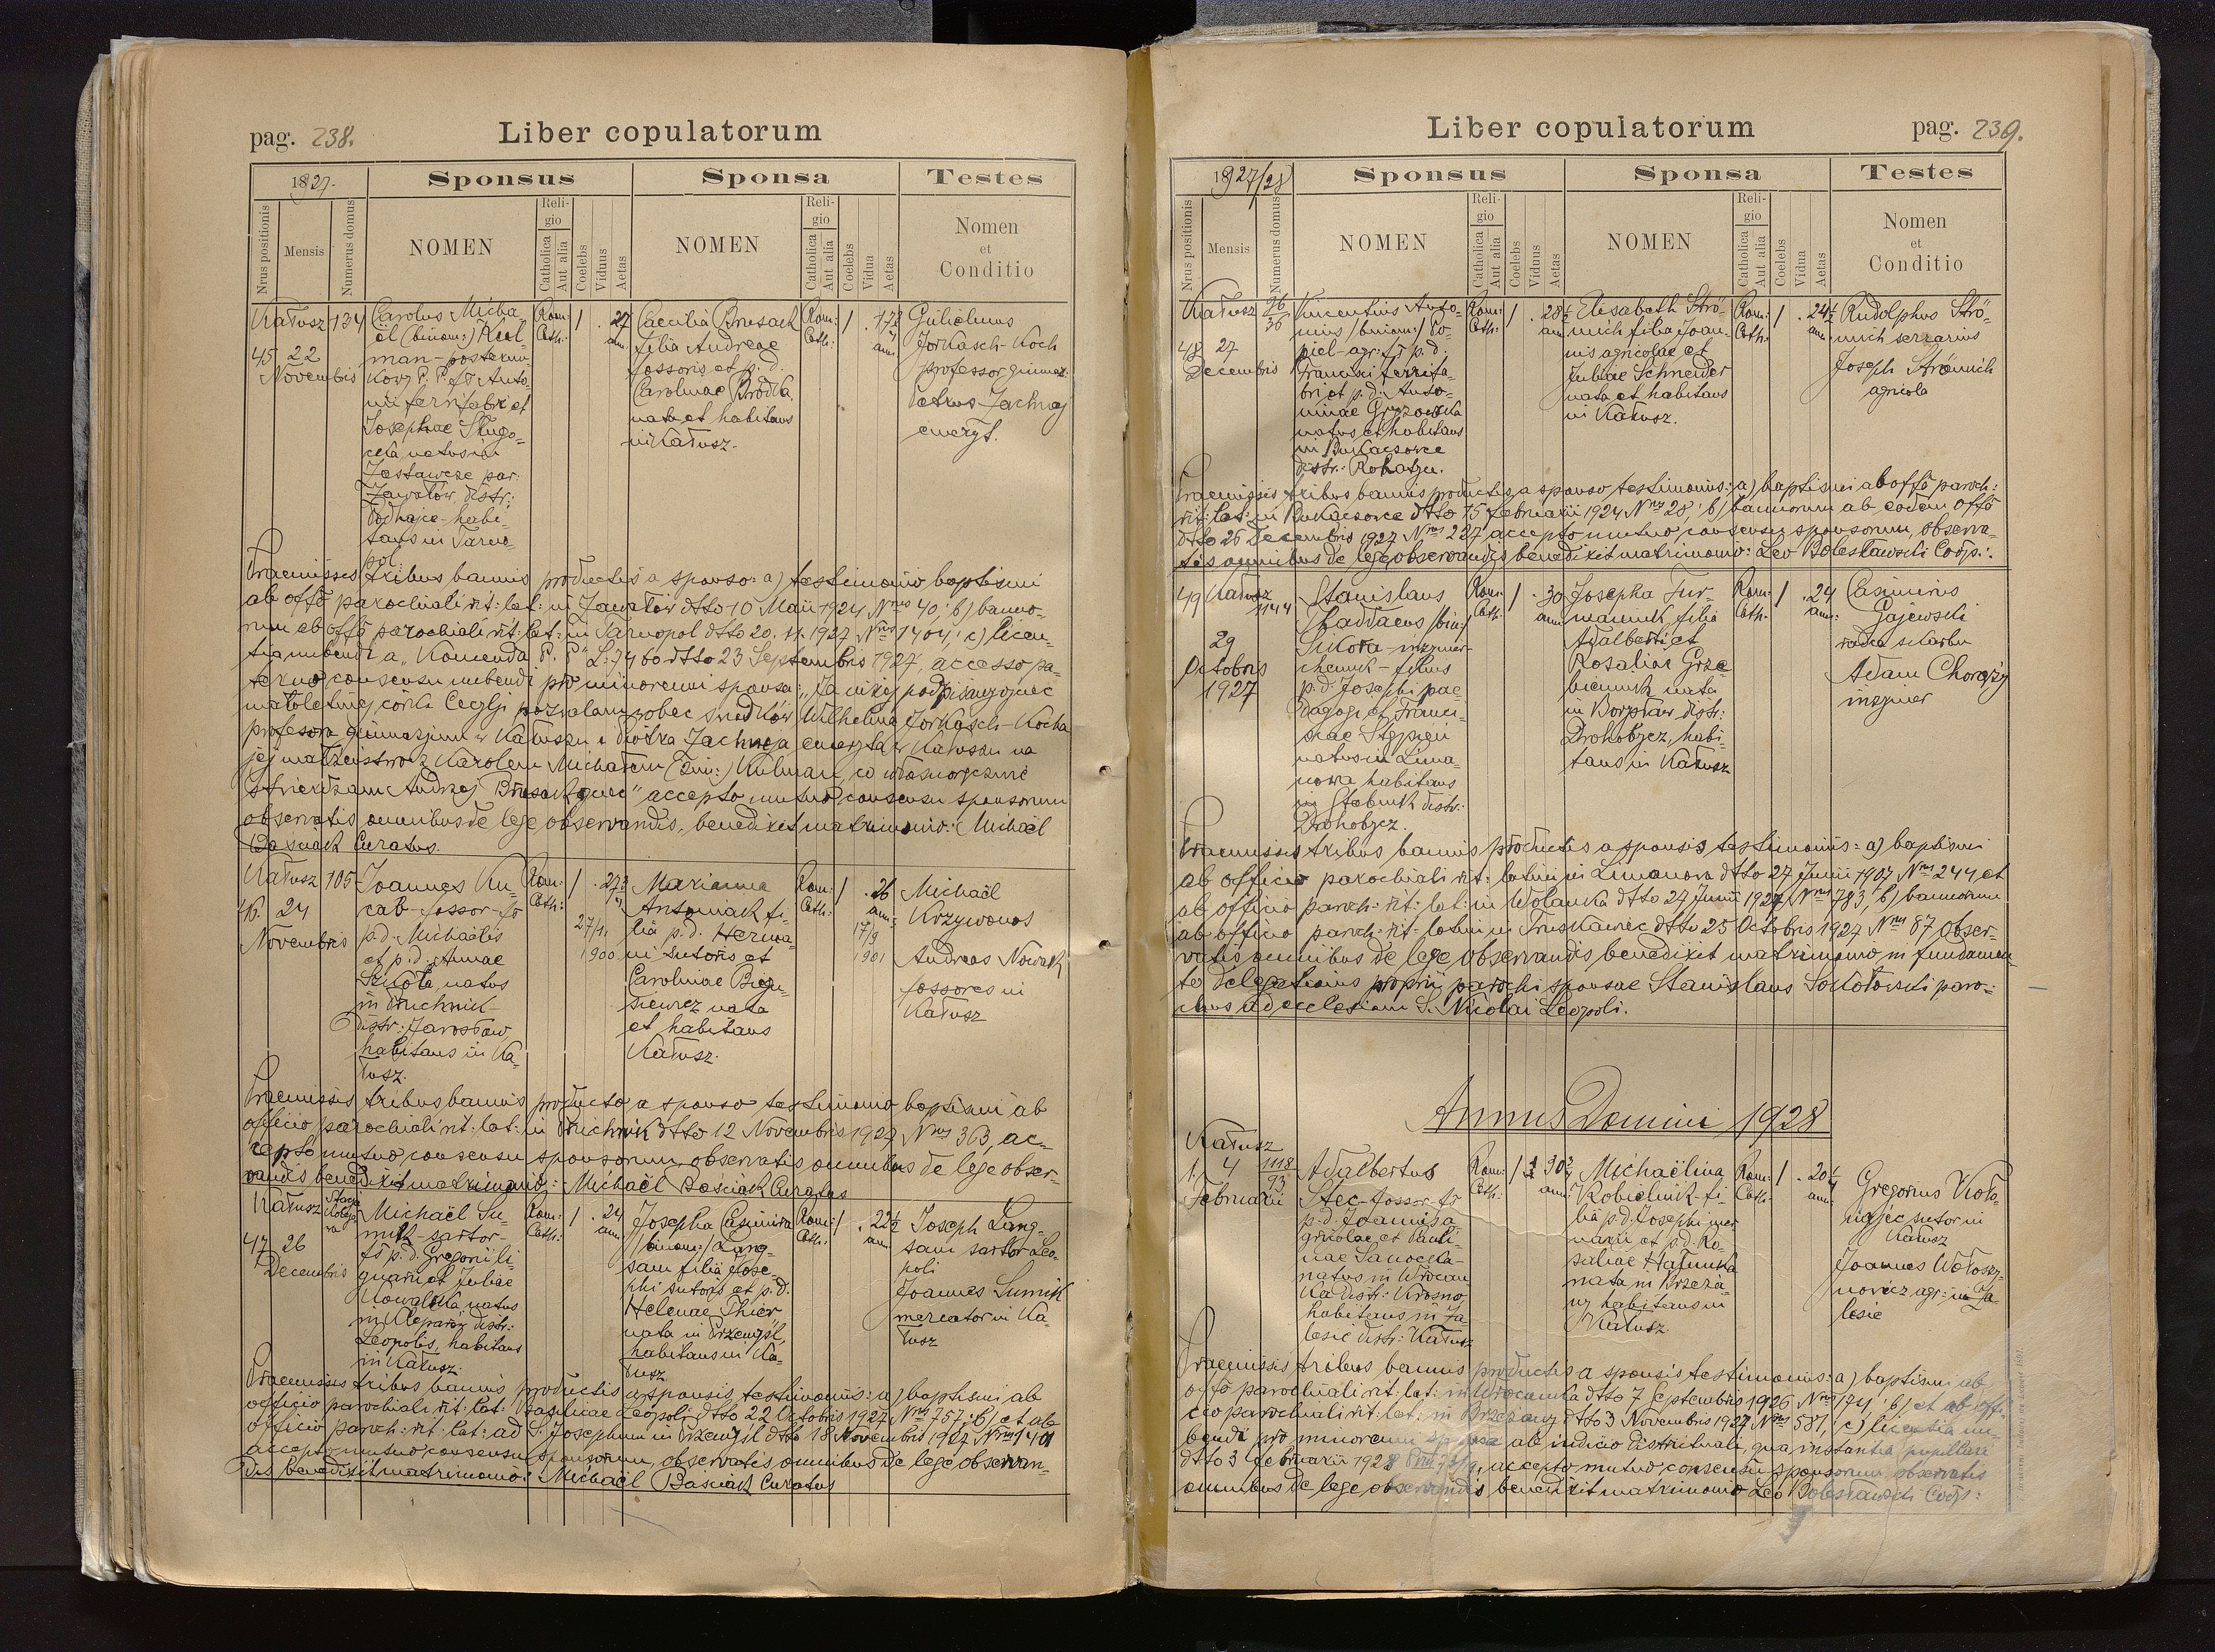 pag. 238.
Liber copulatorum
1927.
Sponsus
Sponsa
Testes
Nrus positionis
Mensis
Numerus domus
NOMEN
Religio
Catholica
Aut alia
Coelebs
Viduus
Aetas
NOMEN
Religio
Catholica
Aut alia
Coelebs
Vidua
Aetas
Nomen
et
Conditio
Kałusz 134
45 22
Novembis
Carolus Micha-
ël (binom:) Kul
man - posterun
kowy P. P. fs Anto
nii ferrifabri et
Josephae Sługo-
cka, natus in
Zastawcze par:
Zawałów distr:
Podhajce - habi-
tans in Tarno-
pol.
Rom: Cath: / . 27 ann.
Caecilia Brusack
filia Andreae
fossoris et p. d.
Carolinae Brodka
nata et habitans
in Kałusz.
Rom: Cath: / . ann:
Gulielmus
Jorkasch-Koch
professor gimnaz.
Petrus Jachnej
emeryt.
Praemissis tribus bannis productis a sponso: a) testimonio baptismi
ab offo parochiali rit: lat: in Zawałów dtto 10 Maii 1924 Nrus 40; b) banno-
rum ab offo parochiali rit: lat: in Tarnopol dtto 20. 11. 1927 Nrus 1404; c) licen-
tia nubendi a „Komenda P. P" L: 7460 dtto 23 Septembris 1927, accesso pa-
terno consensu nubendi pro minorenni sponsa: „Ja niżej podpisany ojciec
małoletniej córki Cecylji pozwalam wobec świadków Wilhelma Jorkasch-Kocha
profesora gimnazjum w Kałuszu i Piotra Jachneja emeryta w Kałuszu na
jej małżeństwo z Karolem Michałem (2im:) Kulman, co własnoręcznie
stwierdzam Andrzej Brusack ojciec" accepto mutuo consensu sponsorum
observatis omnibus de lege observandis, benedixit matrimonio: Michaël
Baściak Curatus.
Kałusz 105
46. 24
Novembris
Joannes Ku-
cab - fossor - fs
p. d. Michaëlis
et p. d. Annae
Szkoła, natus
in Pruchnik
distr: Jarosław
habitans in Ka-
łusz.
Rom: Cath: / . 27
27/1,
1900
Marianna
Antoniak fi-
lia p. d. Herma-
ni sutoris et
Carolinae
nata
et habitans
Kałusz.
Rom: Cath: / . 26 ann:
17/9
1901
Michaël
Krzywonos
Andreas Nowak
fossores in
Kałusz
Praemissis tribus bannis producto a sponso testimonio baptismi ab
officio parochiali rit: lat: in Pruchnik dtto 12 Novembris 1927 Nrus 363, ac-
cepto mutuo consensu sponsorum, observatis omnibus de lege obser-
vandis benedixit matrimonio: Michaël Baściak Curatus
Kałusz Stacja
47 26
Decembris
Michaël Su-
mik - sartor -
fs p. d. Gregorii li-
gnarii et Juliae
Kowalska natus
in Kleparów distr:
Leopolis, habitans
in Kałusz.
Rom: Cath: / . 24 ann
Josepha Casimira
/binom:/ Lang-
sam filia Jose-
phi sutoris et p. d.
Helenae Thier
nata in Przemyśl,
habitans in Ka-
łusz
Rom: Cath: / . 22½ ann
Joseph Lang-
sam sartor Leo-
poli
Joannes Sumik
mercator in Ka-
łusz
Praemissis tribus bannis productis a sponsis testimoniis: a) baptismi ab
officio parochiali rit: lat: Basilicae Leopoli dtto 22 Octobris 1927 Nrus 757; b) et ab
officio paroch: rit: lat: ad S. Josephum in Przemyśl dtto 18 Novembris 1927 Nrus 1401
accepto mutuo consensu sponsorum, observatis omnibus de lege observan-
dis benedixit matrimonio: Michaël Baściak Curatus
Liber copulatorum
pag. 239.
1927/28
Sponsus
Sponsa
Testes
Nrus positionis
Mensis
Numerus domus
NOMEN
Religio
Catholica
Aut alia
Coelebs
Viduus
Aetas
NOMEN
Religio
Catholica
Aut alia
Coelebs
Vidua
Aetas
Nomen
et
Conditio
Kałusz 26/36
48 27
Decembris
Vincentius Anto-
nius /binom:/ Po-
piel - agr: fs p. d.
Francisci ferrifa-
bri et p. d. Anto-
ninae Gryzowska
natus et habitans
in Bukaczowce
distr: Rohatyn.
Rom: Cath: / . 28½ ann
Elisabeth Strö-
mich filia Joan-
nis agricolae et
Juliae Schneider
nata et habitans
in Kałusz.
Rom: Cath: / . 24½ ann:
Rudolphus Strö-
mich serrarius
Joseph Strömich
agricola
Praemissis tribus bannis productis a sponso testimoniis: a) baptismi ab offo paroch:
rit: lat: in Bukaczowce dtto 15 Februarii 1924 Nrus 28; b) bannorum ab eodem offo
dtto 26 Decembris 1927 Nrus 227, accepto mutuo consensu sponsorum, observa-
tis omnibus de lege observandis benedixit matrimonio: Leo Bolesławski Coop.:
49 Kałusz 1144
29
Octobris
1927
Stanislaus
Thaddaeus /bin:/
Sikora - inżynier
chemik - filius
p. d. Josephi pae-
dagogi et Franci-
scae Stępień
natus in Lima-
nowa habitans
in Stebnik distr:
Drohobycz.
Rom: Cath: / . 30 ann
Josepha Fur-
maniuk, filia
Adalberti et
Rosaliae Grze-
bieniuk nata
in Borysław distr:
Drohobycz, habi-
tans in Kałusz
Rom: Cath: / . 24 ann:
Casimirus
Gajewski
radca skarbu
Adam Chorąży
inżynier
Praemissis tribus bannis productis a sponsis testimoniis: a) baptismi
ab officio parochiali rit: latini in Limanowa dtto 27 Junii 1907 Nrus 244 et
ab officio paroch: rit: lat: in Wolanka dtto 24 Junii 1927 Nrus 783; b) bannorum
ab officio paroch: rit: latini in Truskawiec dtto 25 Octobris 1927 Nrus 87 obser-
vatis omnibus de lege observandis benedixit matrimonio in fundamen-
to delegationis proprii parochi sponsae Stanislaus Sokołowski paro-
chus ad ecclesiam S. Nicolai Leopoli.
Annus Domini 1928
Kałusz
1. 4 1118/93
Februarii
Adalbertus
Stec - fossor - fs
p. d. Joannis a-
gricolae et Pauli-
nae Sanocka
natus in Wrocan-
ka distr: Krosno
habitans in Za-
lesie distr: Kałusz
Rom: Cath: / 30 ann:
Michaëlina
Kobielnik - fi-
lia p. d. Josephi mer-
narii et p. d. Ro-
saliae Hałuszka
nata in Brzeża-
ny habitans in
Kałusz.
Rom: Cath: / . 20 ann:
Gregorius Koło-
sutor in
Kałusz
Joannes Wołoszy-
nowicz agr: in Za-
lesie
Praemissis tribus bannis productis a sponsis testimoniis: a) baptismi ab
offo parochiali rit: lat: in Wrocanka dtto 7 Septembris 1926 Nrus 174; b) et ab offi-
cio parochiali rit: lat: in Brzeżany dtto 3 Novembris 1927 Nrus 581; c) licentia nu-
bendi pro minorenni sponsa ab iudicio districtuali, qua instantia pupillari
dtto 3 Februarii 1928 accepto mutuo consensu sponsorum observatis
omnibus de lege observandis benedixit matrimonio Leo Bolesławski Coop: